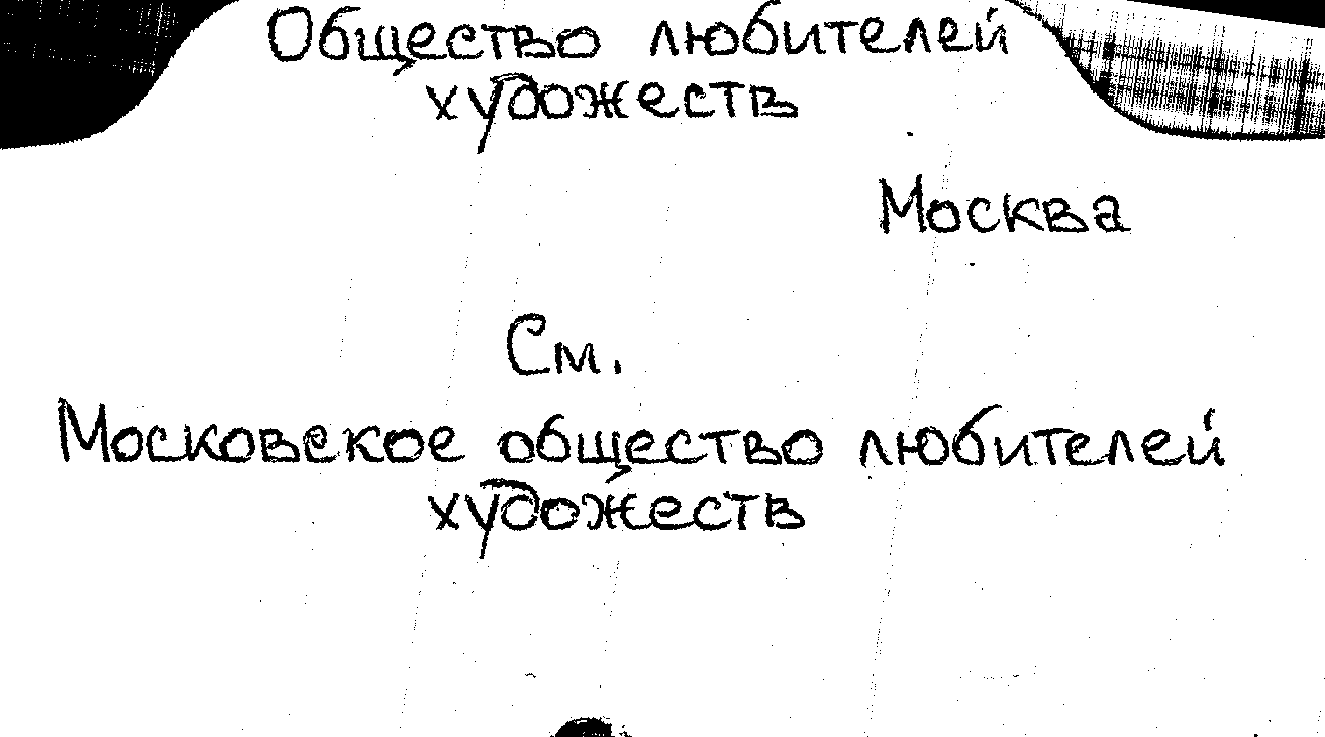 Общество любителей
художеств
Москва
См.
Московское общество любителей
художеств